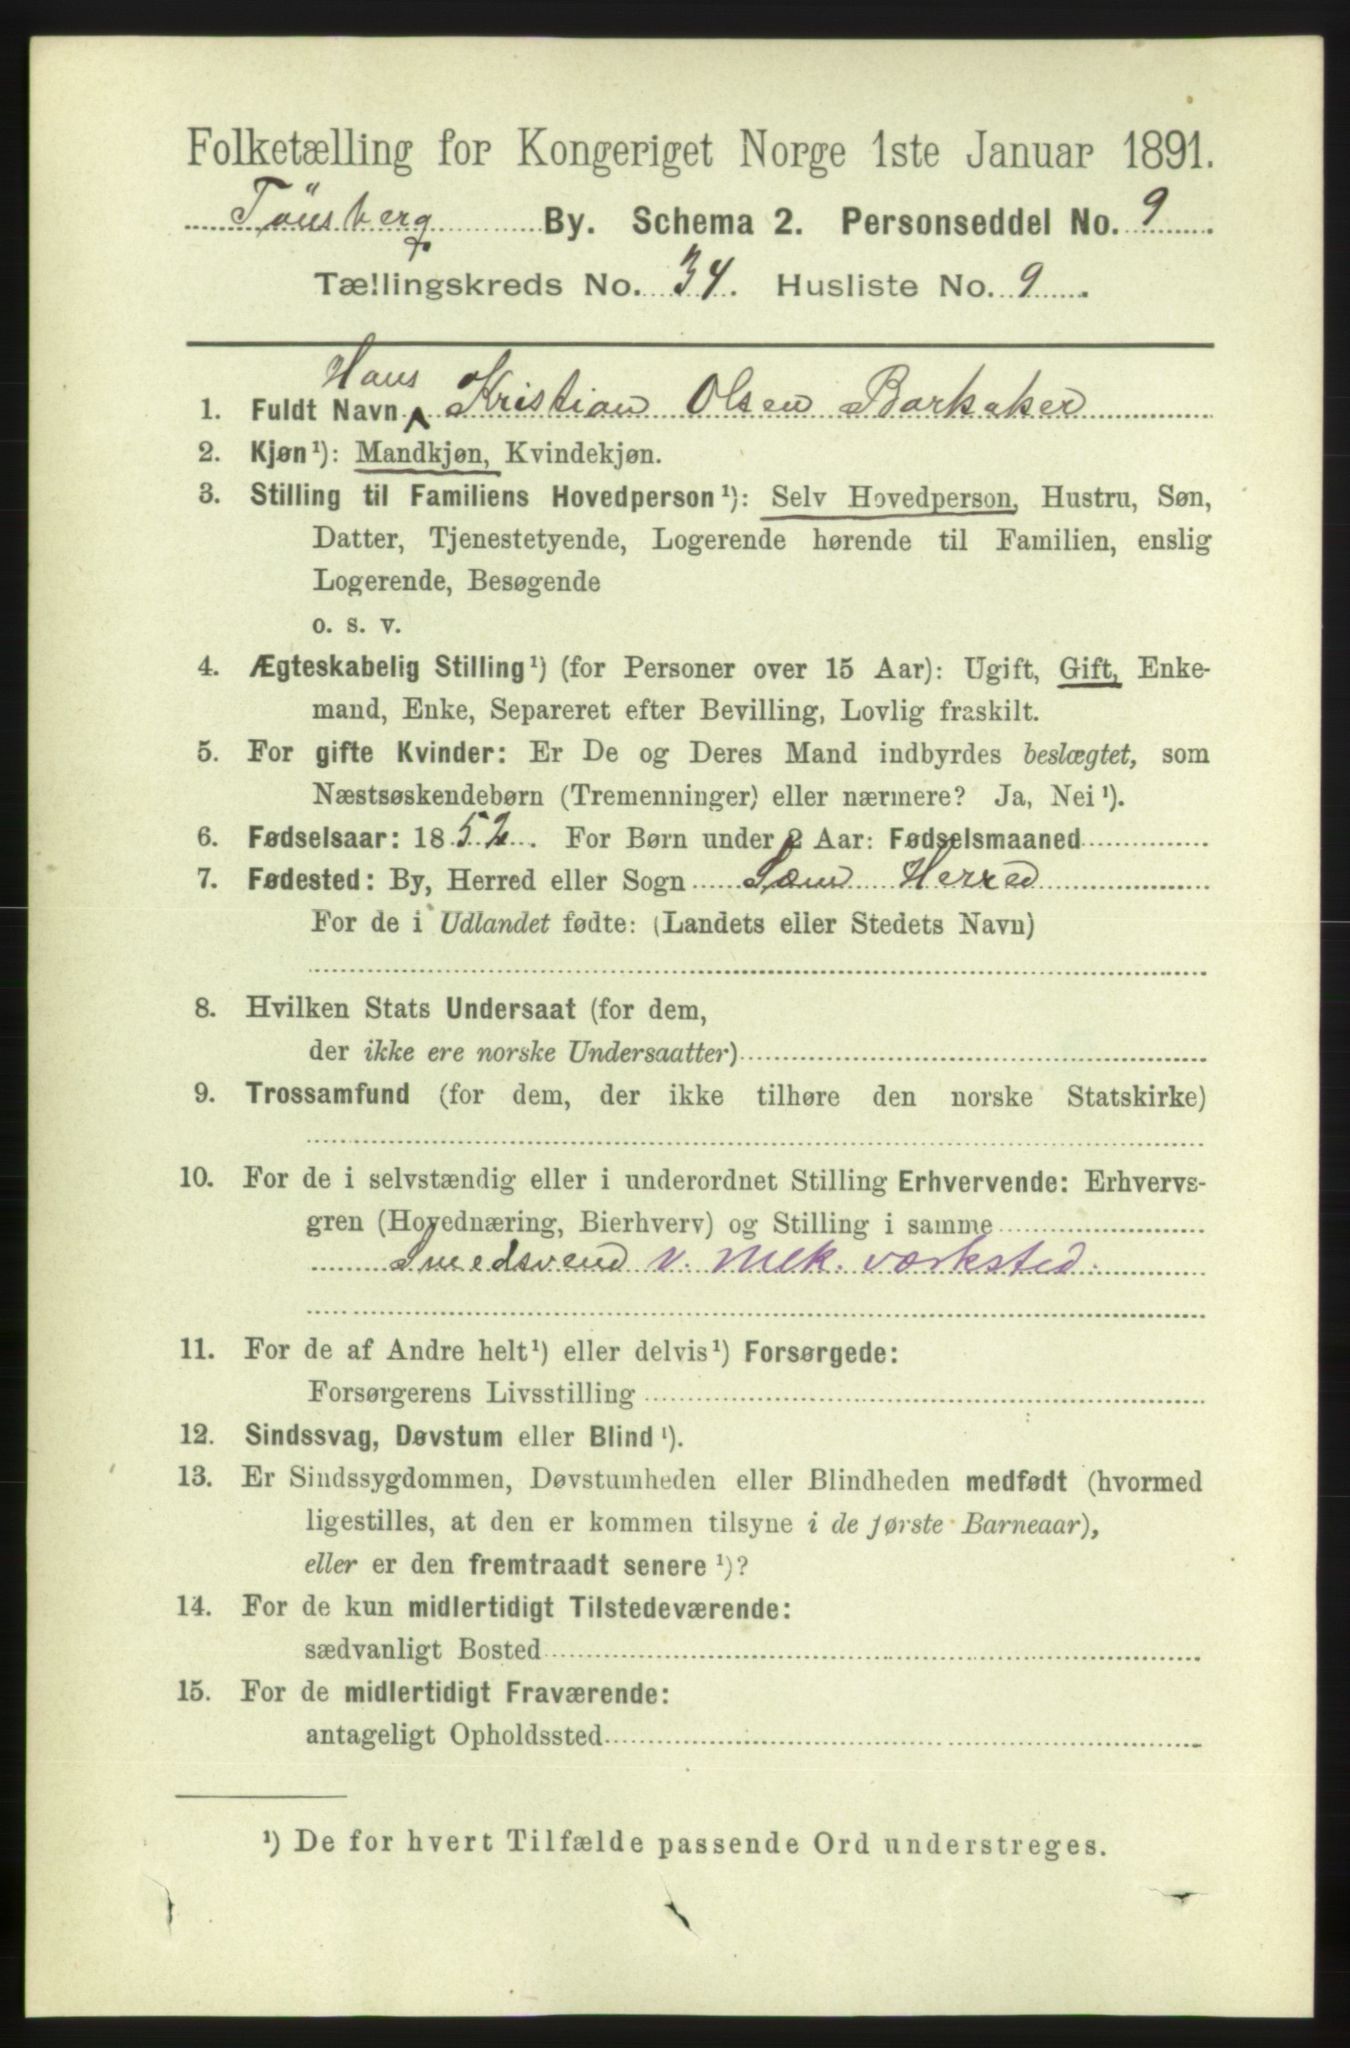 Folketælling for Kongeriget Norge 1ste Januar 1891.
Tönsberg By. Schema 2. Personseddel No. 9
Tællingskreds No. 34. Husliste No. 9
Hans
1. Fuldt Navn Kristian Olsen Barkaker
2. Kjøn¹): Mandkjøn, Kvindekjøn.
3. Stilling til Familiens Hovedperson¹): Selv Hovedperson, Hustru, Søn,
Datter, Tjenestetyende, Logerende hørende til Familien, enslig
Logerende, Besøgende
o. s. v.
4. Ægteskabelig Stilling¹) (for Personer over 15 Aar): Ugift, Gift, Enke-
mand, Enke, Separeret efter Bevilling, Lovlig fraskilt.
5. For gifte Kvinder: Er De og Deres Mand indbyrdes beslægtet, som
Næstsøskendebørn (Tremenninger) eller nærmere? Ja, Nei¹).
6. Fødselsaar: 1852. For Børn under 2 Aar: Fødselsmaaned
7. Fødested: By, Herred eller Sogn Sæm Herred
For de i Udlandet fødte: (Landets eller Stedets Navn)
8. Hvilken Stats Undersaat (for dem,
der ikke ere norske Undersaatter)
9. Trossamfund (for dem, der ikke tilhøre den norske Statskirke)
10. For de i selvstændig eller i underordnet Stilling Erhvervende: Erhvervs-
gren (Hovednæring, Bierhverv) og Stilling i samme
Smedsvend v. Mek. værksted.
11. For de af Andre helt¹) eller delvis¹) Forsørgede:
Forsørgerens Livsstilling
12. Sindssvag, Døvstum eller Blind¹).
13. Er Sindssygdommen, Døvstumheden eller Blindheden medfødt (hvormed
ligestilles, at den er kommen tilsyne i de første Barneaar),
eller er den fremtraadt senere¹)?
14. For de kun midlertidigt Tilstedeværende:
sædvanligt Bosted
15. For de midlertidigt Fraværende:
antageligt Opholdssted
¹) De for hvert Tilfælde passende Ord understreges.